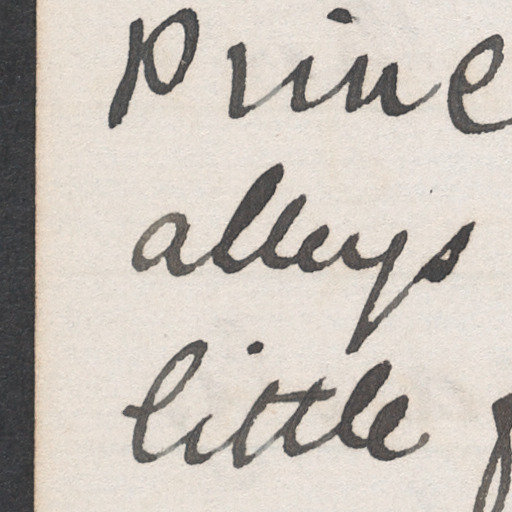 pine
alleys
little